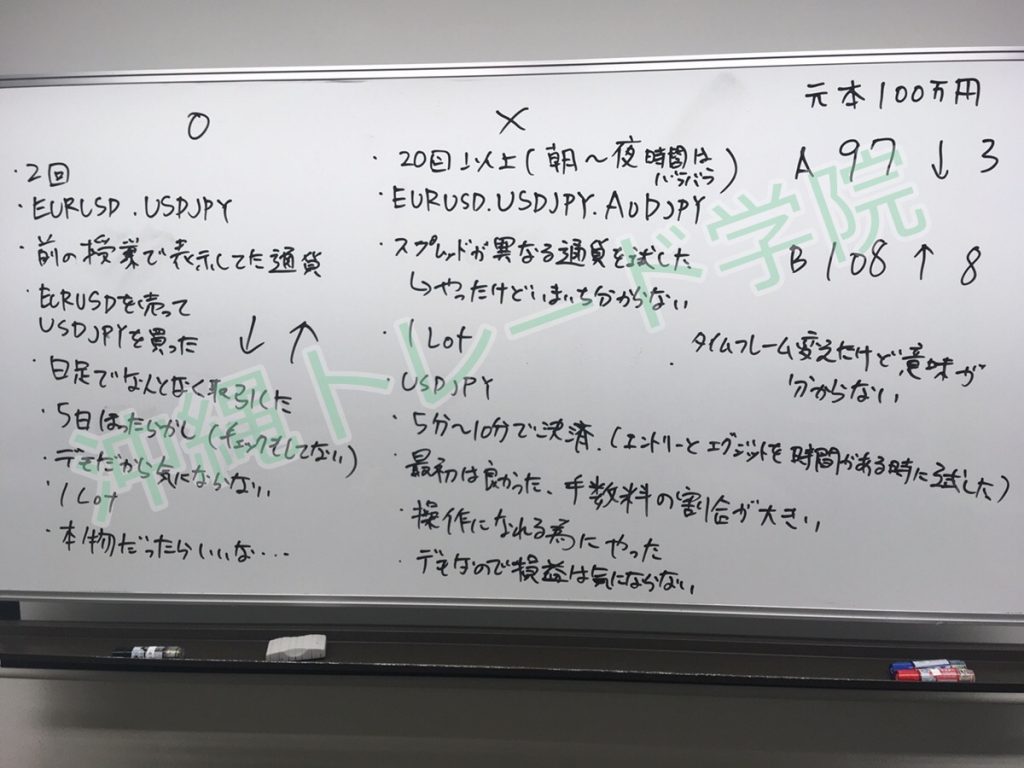 元本100万円
A 97 ↓ 3
B 108 ↑ 8
タイムフレーム変えたけど意味が
分からない
○
・2回
・EURUSD.USDJPY
・前の授業で表示してた通貨
・EURUSDを売って
USDJPYを買った ↓ ↑
・日足でなんとなく取引した
・5日ほったらかし(チェックもしてない)
・デモだから気にならない
・1Lot
・本物だったらいいな・・・
×
・20回以上(朝〜夜時間は
バラバラ)
・EURUSD.USDJPY.AUDJPY
・スプレッドが異なる通貨を試した
↳やったけどいまいち分からない
・1Lot
・USDJPY
・5分〜10分で決済.(エントリーとエグジットを時間がある時に試した)
・最初は良かった、手数料の割合が大きい
・操作になれる為にやった
・デモなので損益は気にならない
沖縄トレード学院